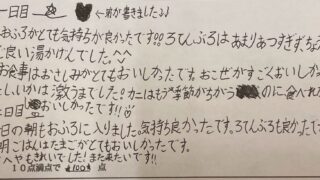 一日目 ← 弟が書きました♪
おふろがとても気持ちが良かったです!!ろてんぶろはあまりあつすぎず、ちょ
ど良い湯かげんでした。^^
お食事はおさしみがとてもおいしかったです。おこぜがすごくおいしかっ
しいかは激うまでした。カニはもう季節がちがうのに食べれ
日目 おいしかったです!!♡
日の朝もおふろに入りました。気持ち良かったです。ろてんぶろも良かったで
朝ごはんはたまごがとてもおいしかったです。
へやもきれいでした!また来たいです!!
10点満点で 100 点